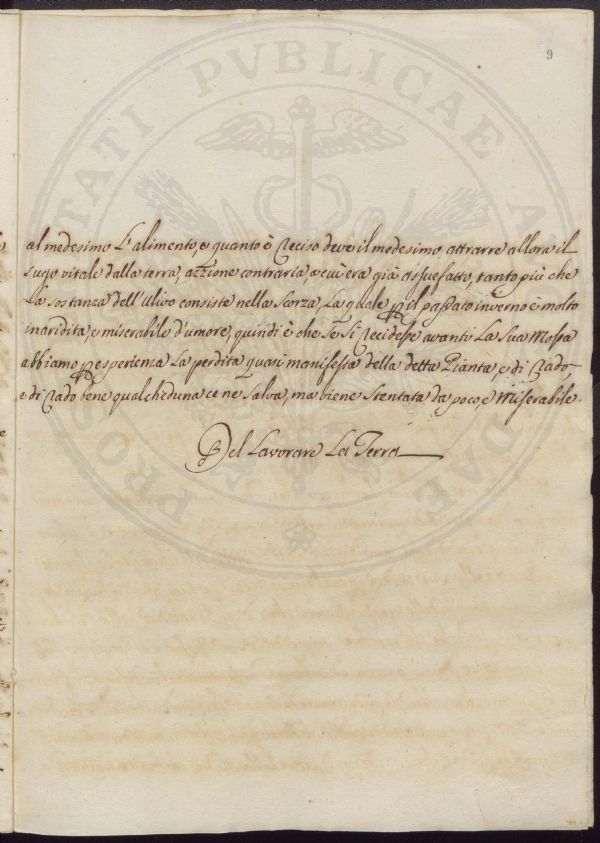 9
al medesimo L'alimento, e quanto è Reciso deve il medesimo attrarre allora il
sugo vitale dalla terra, azzione contraria, a cui era già assuefatto, tanto più che
La sostanza dell'Ulivo consiste nella Scorza, La quale p il passato inverno è molto
inaridita, e miserabile d'umore, quindi è che Se Si Recidesse avanti La Sua Mossa
abbiamo p esperienza La perdita quasi manifesta della detta Pianta, e di Rado,
e di Rado bene qualcheduna ce ne Salva, ma viene Stentata da poco, e Miserabile.
Del Lavorare La Terra
PROSPERITATI PVBLICAE